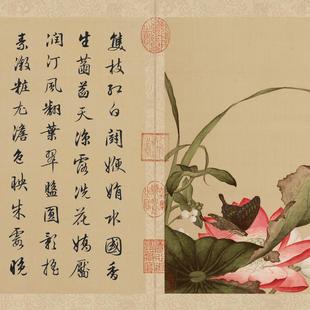 雙枝紅白鬪㛹娟水國香
生菡萏天涼露洗花嬌靨
潤汀風翻葉翠盤圓影搖
素瀫粧尤澹色映朱霞晚